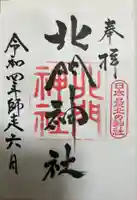 奉拝
日本最北の神社
北門神社
北門神社
令和四年師走六日